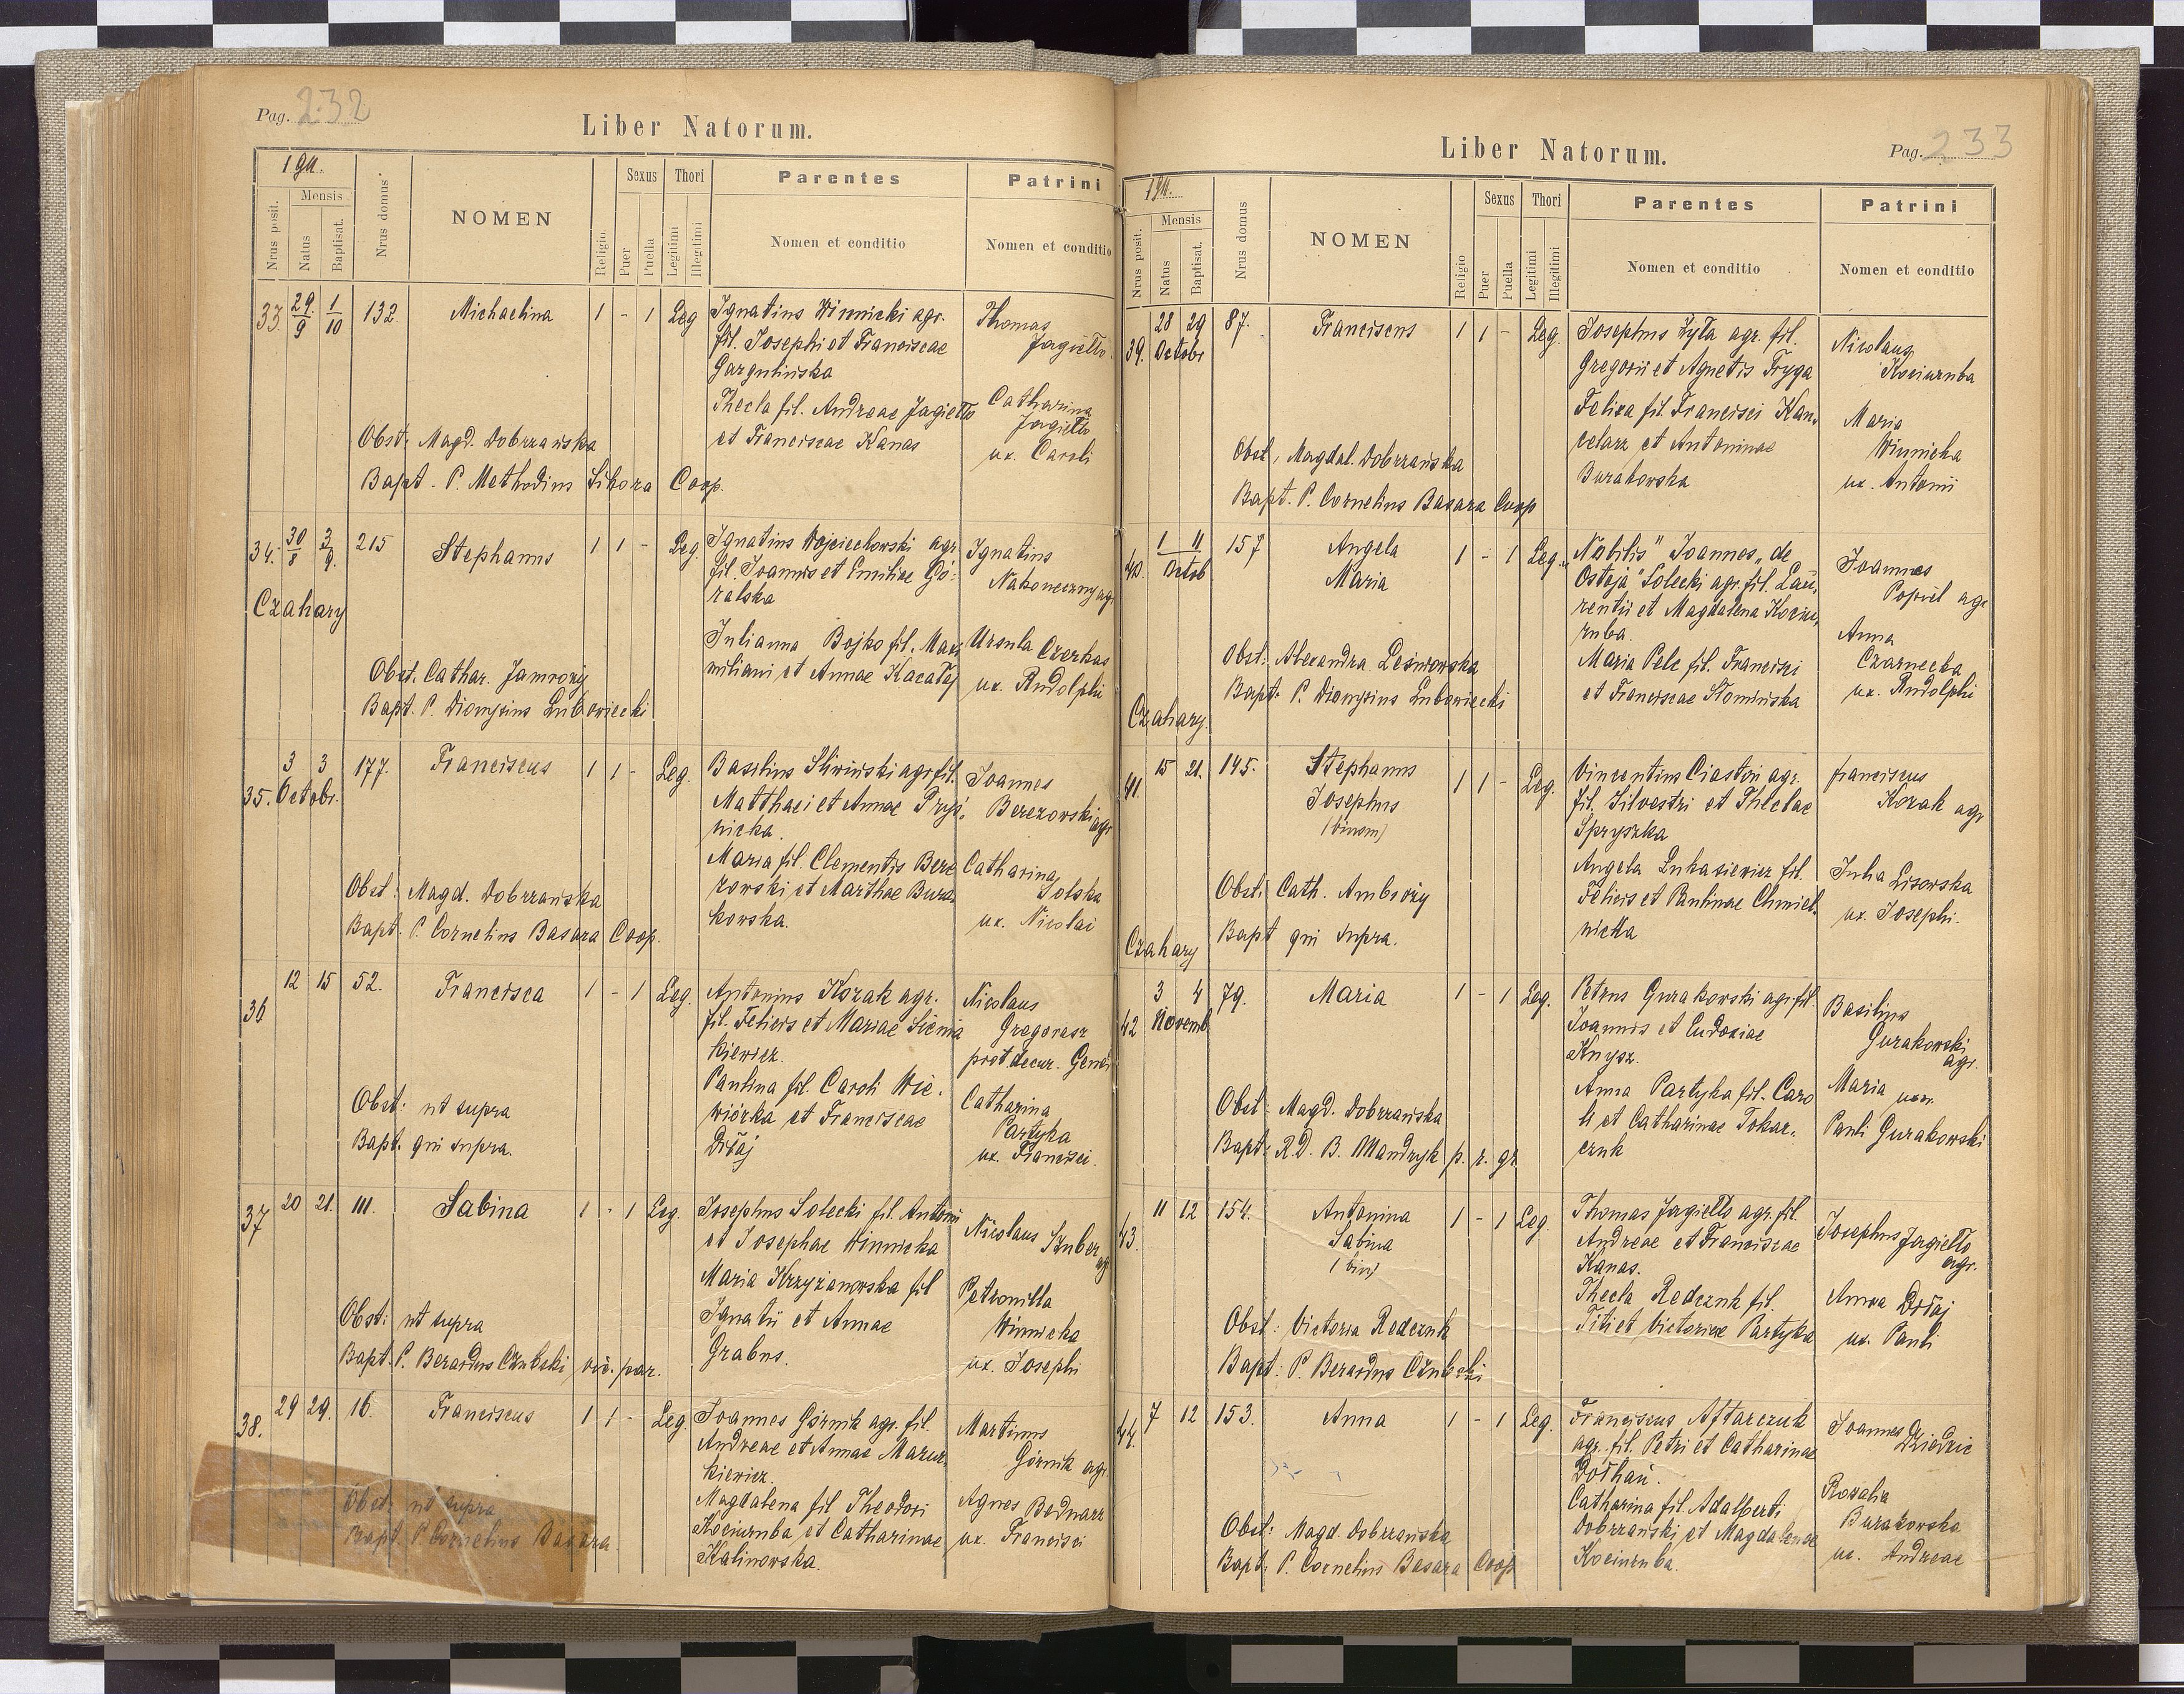 Pag. 232
Liber Natorum.
1911.
Nrus posit.
Mensis
Natus
Baptisat.
Nrus domus
NOMEN
Religio
Sexus
Puer
Puella
Thori
Legitimi
Illegitimi
Parentes
Nomen et conditio
Patrini
Nomen et conditio
33. 29/9 1/10 132. Michaelina 1 - 1 Leg
Ignatius Winnicki agr.
fil. Josephi et Franciscae
Gargulińska
Thecla fil. Andreae Jagiełło
et Franciscae Kanas
Thomas
Jagiełło
Catharina
Jagiełło
ux. Caroli
Obst: Magd. Dobrzańska
Bapt. P. Methodius Sikora Coop.
34. 30/8 3/9. 215 Stephanus 1 1 - Leg.
Czahary
Ignatius Wojciechowski agr
fil. Joannis et Emiliae Gó-
ralska
Julianna Bojko fil. Maxi
miliani et Annae Kacałaj
Ignatius
Nakoneczny agr
Ursula Czerkas
ux. Rudolphi
Obst. Cathar. Jamroży
Bapt. P. Dionysius Lubowiecki
35. 3 3 Octobr. 177. Franciscus 1 1 - Leg.
Basilius Śliwiński agr fil.
Matthaei et Annae Pryś-
nicka.
Maria fil. Clementis Bere
zowski et Marthae Bura-
kowska.
Joannes
Berezowski agr
Catharina
Solska
ux. Nicolai
Obst: Magd. Dobrzańska
Bapt. P. Cornelius Basara Coop.
36 12 15 52. Francisca 1 - 1 Leg.
Antonius Kozak agr.
fil. Felicis et Mariae Sienia
kiewicz.
Paulina fil. Caroli Wie-
wiórka et Franciscae
Dżaj
Nicolaus
Gregorasz
Catharina
Partyka
ux. Francisci.
Obst: ut supra
Bapt. qui supra.
37 20 21. 111. Sabina 1 - 1 Leg.
Josephus Solecki fil. Antonii
et Josephae Winnicka
Maria Krzyżanowska fil
Ignatii et Annae
Grabus.
Nicolaus Szuber
agr
Petronilla
Winnicka
ux. Josephi
Obst: ut supra
Bapt: P. Berardus Czubski vic. par.
38. 29 29. 16. Franciscus 1 1 - Leg
Joannes Górnik agr. fil.
Andreae et Annae Mazur-
kiewicz.
Magdalena fil Theodori
Kociumba et Catharinae
Kalinowska.
Martinus
Górnik agr.
Agnes Bednarz
ux. Francisci
Obst: ut supra
Bapt. P. Cornelius Basara.
Liber Natorum.
Pag. 233
1911.
Nrus posit.
Mensis
Natus
Baptisat.
Nrus domus
NOMEN
Religio
Sexus
Puer
Puella
Thori
Legitimi
Illegitimi
Parentes
Nomen et conditio
Patrini
Nomen et conditio
39. 28 29 Octobr 87. Franciscus 1 1 - Leg.
Josephus Zyła agr. fil.
Gregorii et Agnetis Fryga
Felixa fil. Francisci Kan-
celarz et Antoninae
Burakowska
Nicolaus
Kociumba
Maria
Winnicka
ux. Antonii
Obst, Magdal. Dobrzańska
Bapt. P. Cornelius Basara Coop
40. 1 11 Octob 157 Angela
Maria 1 - 1 Leg.
Nobilis" Joannes „de
Ostoja" Solecki agr. fil. Lau-
rentii et Magdalena Kociu-
mba.
Maria Pelc fil. Francisci
et Franciscae Słomińska
Joannes
Popiel agr
Anna
Czarnecka
ux. Rudolphi
Obst: Alexandra Leśniowska
Bapt: P. Dionysius Lubowiecki
Czahary.
41. 15 21. 145. Stephanus
Josephus
(binom) 1 1 - Leg.
Vincentius Ciastoń agr.
fil. Silvestri et Theclae
Spryszka
Angela Lukasiewicz fil.
Felicis et Paulinae Chmiel-
nicka
Franciscus
Kozak agr
Julia Lisowska
ux. Josephi.
Obst: Cath. Ambroży
Bapt qui supra.
Czahary
42 3 4 Novemb 79. Maria 1 - 1 Leg.
Petrus Gurakowski agr fil.
Joannis et Eudoxiae
Knysz.
Anna Partyka fil. Caro
li et Catharinae Tokar-
czuk
Basilius
Gurakowski
agr.
Maria uxor
Pauli Gurakowski
Obst: Magd. Dobrzańska
Bapt: R.D. B. Mandryk p. r. gr
43. 11 12 154. Antonina
Sabina
(bin) 1 - 1 Leg.
Thomas Jagiełło agr. fil.
Andreae et Franciscae
Kanas.
Thecla Redczuk fil.
Titi et Victoriae Partyka
Josephus Jagiełło
agr.
Anna Dżaj
ux. Pauli
Obst: Victoria Redczuk
Bapt: P. Berardus Czubski
44. 7 12 153. Anna 1 - 1 Leg.
Franciscus Aftarczuk
agr. fil. Petri et Catharinae
Dołhań.
Catharina fil. Adalberti
Dobrzański et Magdalenae
Kociumba.
Joannes Dziedzic
Rozalia
Burakowska
ux. Andreae
Obst: Magd. Dobrzańska
Bapt: P. Cornelius Basara Coop